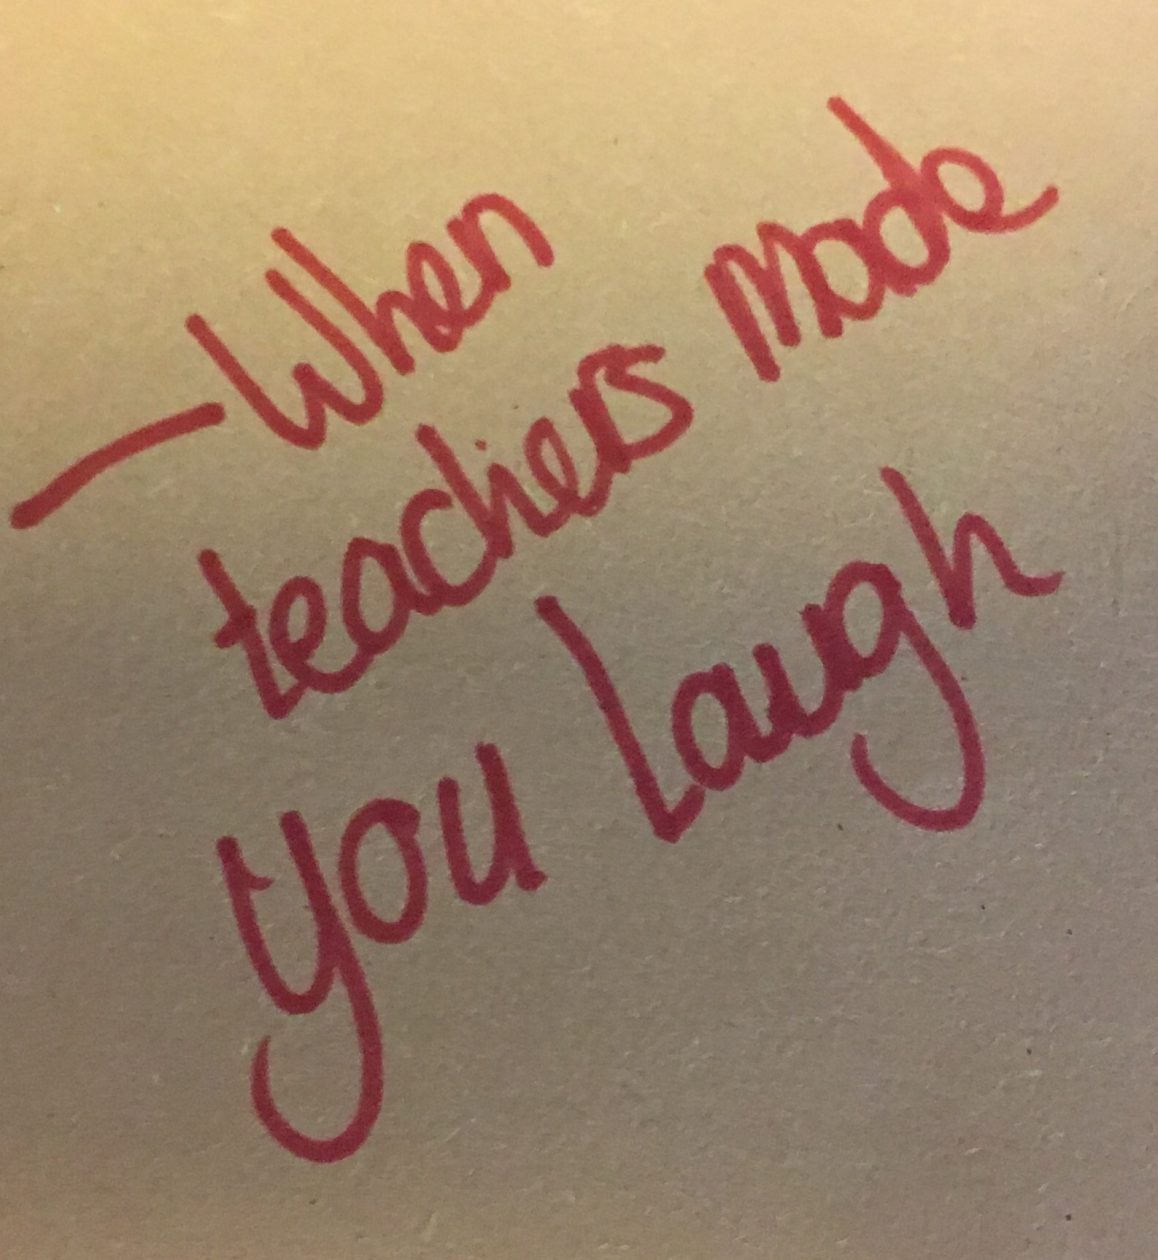 - When
teachers made
you laugh